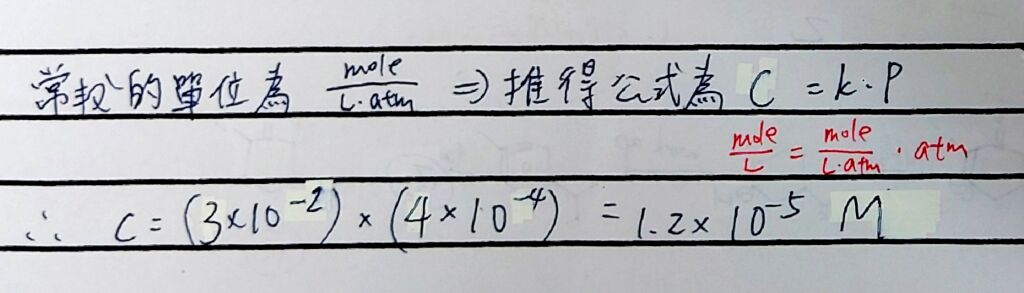 常数的單位為 mole/L·atm ⇒ 推得公式為 C = k·P
mole/L = mole/L·atm · atm
∴ C = (3×10⁻²) × (4×10⁻⁴) = 1.2×10⁻⁵ M